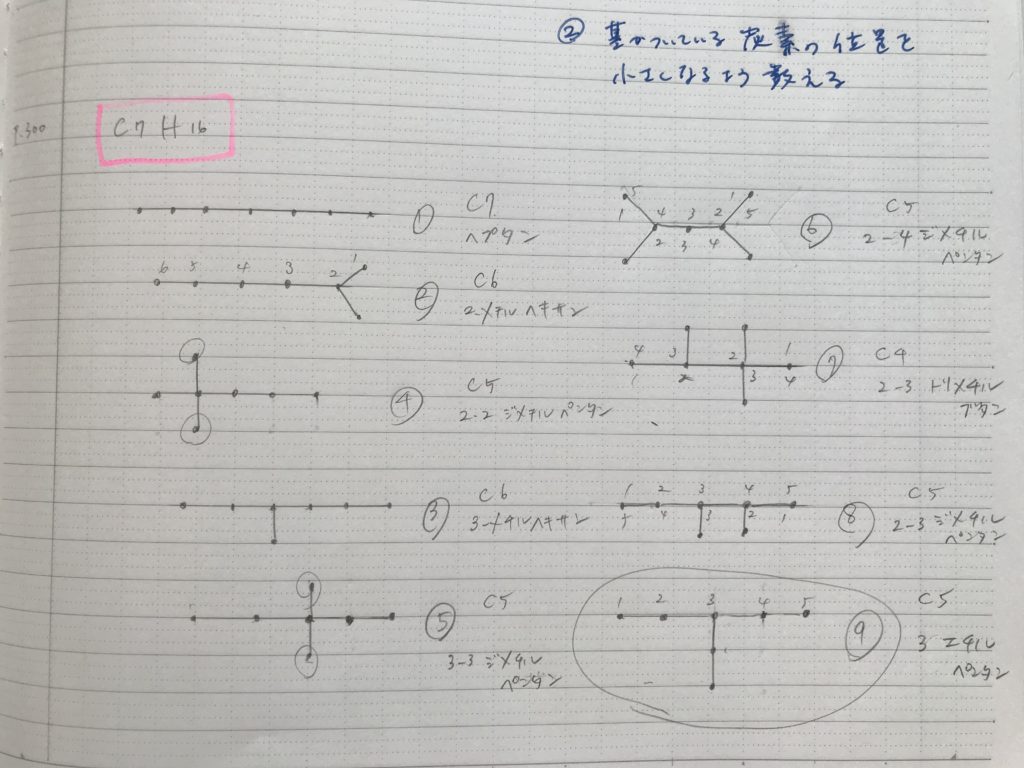 ② 基がついている炭素の位置を
小さくなるよう数える
P.300
C7H16
①
C7
ヘプタン
6 5 4 3 2 1
②
C6
2メチルヘキサン
④
C5
2-2 ジメチルペンタン
③
C6
3-メチルヘキサン
⑤
C5
3-3 ジメチル
ペンタン
5 4 3 2 1
1 2 3 4 5
⑥
C5
2-4 ジメチル
ペンタン
4 3 2 1
1 2 3 4
⑦
C4
2-3 トリメチル
ブタン
1 2 3 4 5
5 4 3 2 1
⑧
C5
2-3 ジメチル
ペンタン
1 2 3 4 5
⑨
C5
3 エチル
ペンタン